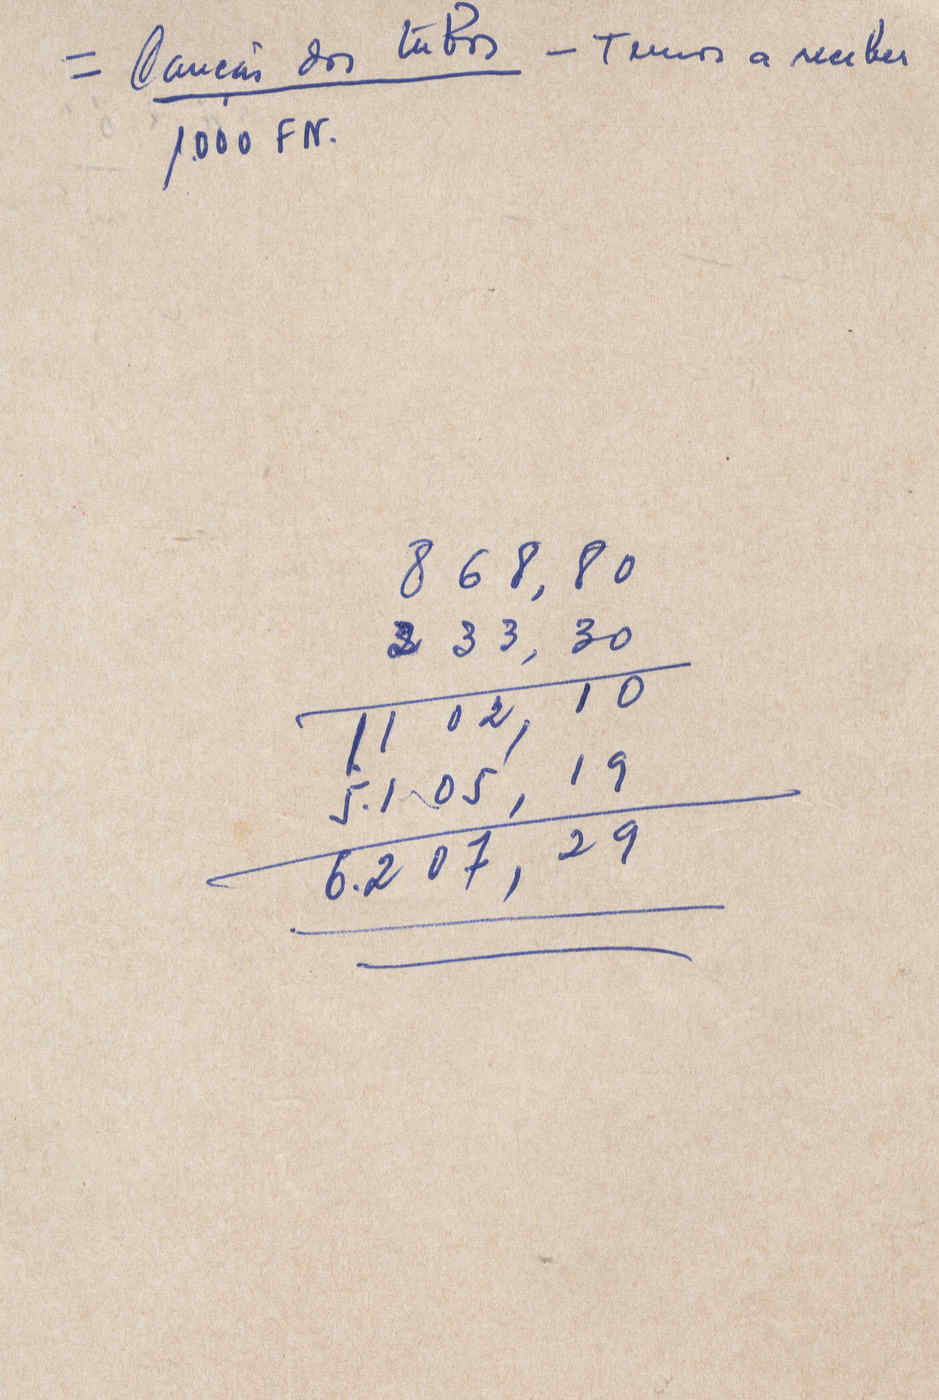 = Caução dos tubos - Temos a receber
1.000 FN.
868,80
233,30
1102,10
5.105,19
6.207,29